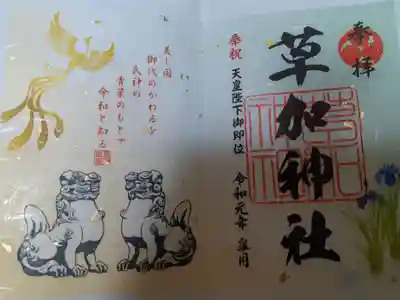 奉拝
草加神社
奉祝 天皇陛下御即位 令和元年 皐月
美し国
御代のかわるを
民神の
青葉のもとで
令和と知る